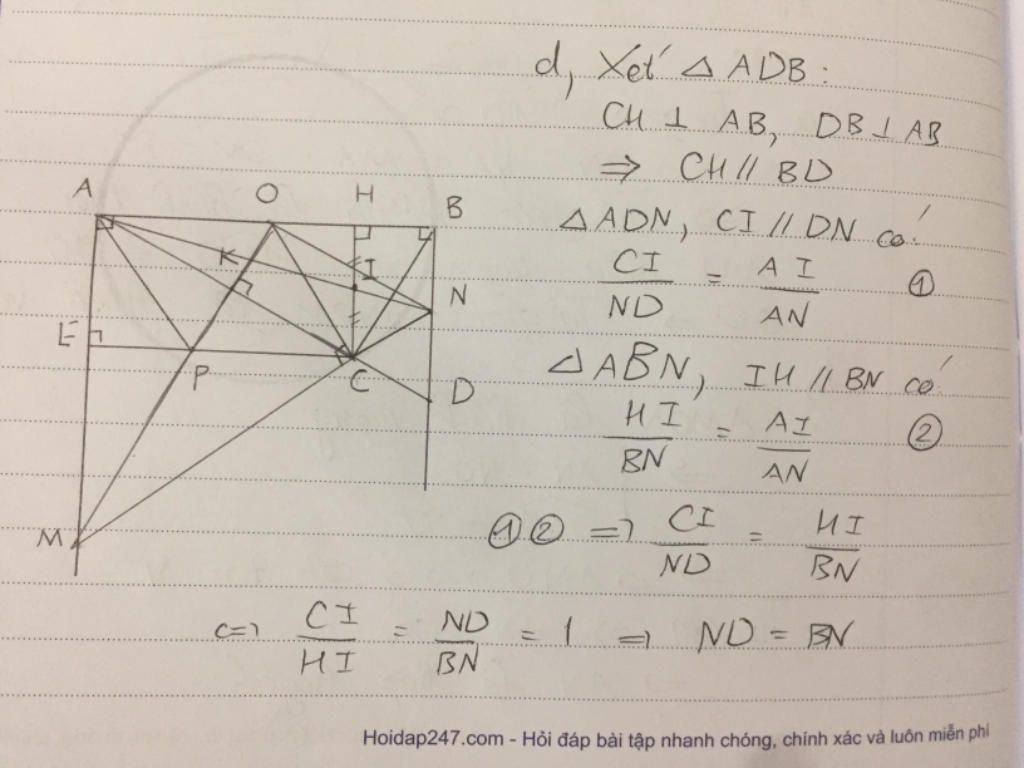 d, Xét △ ADB :
CH ⊥ AB, DB ⊥ AB
⇒ CH // BD
△ ADN, CI // DN có
CI/ND = AI/AN ①
△ ABN, IH // BN có
HI/BN = AI/AN ②
①② ⇒ CI/ND = HI/BN
<=> CI/HI = ND/BN = 1 ⇒ ND = BN
A O H B
K I
N
E
P C D
M
Hoidap247.com - Hỏi đáp bài tập nhanh chóng, chính xác và luôn miễn phí